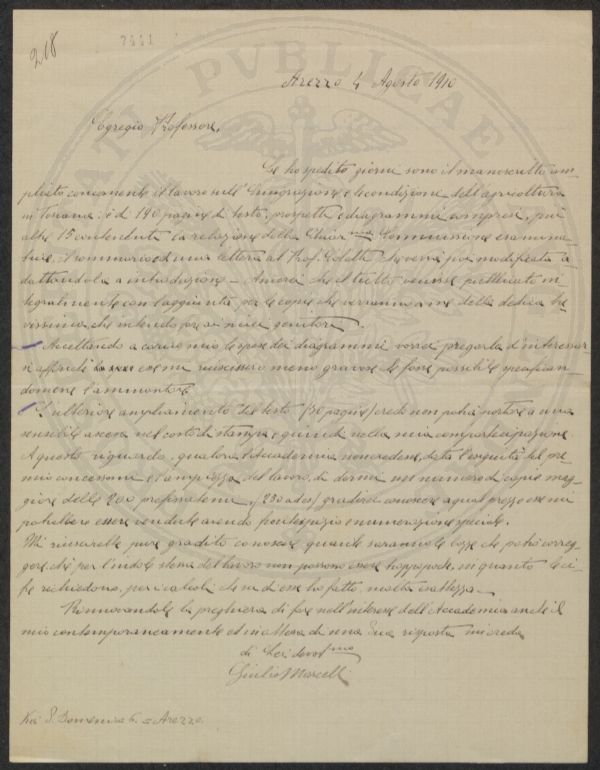 218
7441
Arezzo 4 Agosto 1910
Egregio Professore,
Le ho spedito giorni sono il manoscritto com
pleto concernente il lavoro sull'Emigrazione e le condizioni dell'agricoltura
in Toscana, è di 190 pagine di testo, prospetti e diagrammi compresi, più
altre 15 contenenti la relazione della Chiar.ma Commissione esamina
trice, il sommario ed una lettera al Prof. che verrà poi modificata a
dattandola a introduzione. Amerei che il tutto venisse pubblicato in
tegralmente con l'aggiunta per le copie che verranno a me della dedica bre
vissima che intendo porre ai miei genitori.
Accettando a carico mio le spese dei diagrammi vorrei pregarla d'interessar
si affinché esse mi riuscissero meno gravose le fosse possibile specifican
domene l'ammontare.
L'ulteriore ampliamento del testo (30 pagine) credo non potrà portare a una
sensibile ascesa nel costo di stampa e quindi nella mia compartecipazione.
A questo riguardo, qualora l'Accademia non credesse, data l'esiguità del pre
mio concessomi e l'ampiezza del lavoro, di darmi un numero di copie mag
giore delle 200 (250 ades) gradirei conoscere a qual prezzo esse mi
potrebbero essere vendute avendo frontespizio e numerazione speciale.
Mi riuscirebbe pure gradito conoscere quante saranno le bozze che potrò correg
gere, ché per l'indole stessa del lavoro non possono essere troppo poche, in quanto le ci
fre richiedono, per i calcoli che su di esse ho fatto, molta esattezza.
Rinnovandole la preghiera di fare nell'interesse dell'Accademia anche il
mio contemporaneamente ed in attesa di una Sua risposta mi creda
di Lei devot.mo
Giulio Marcelli
Via S. Domenico 6. = Arezzo.